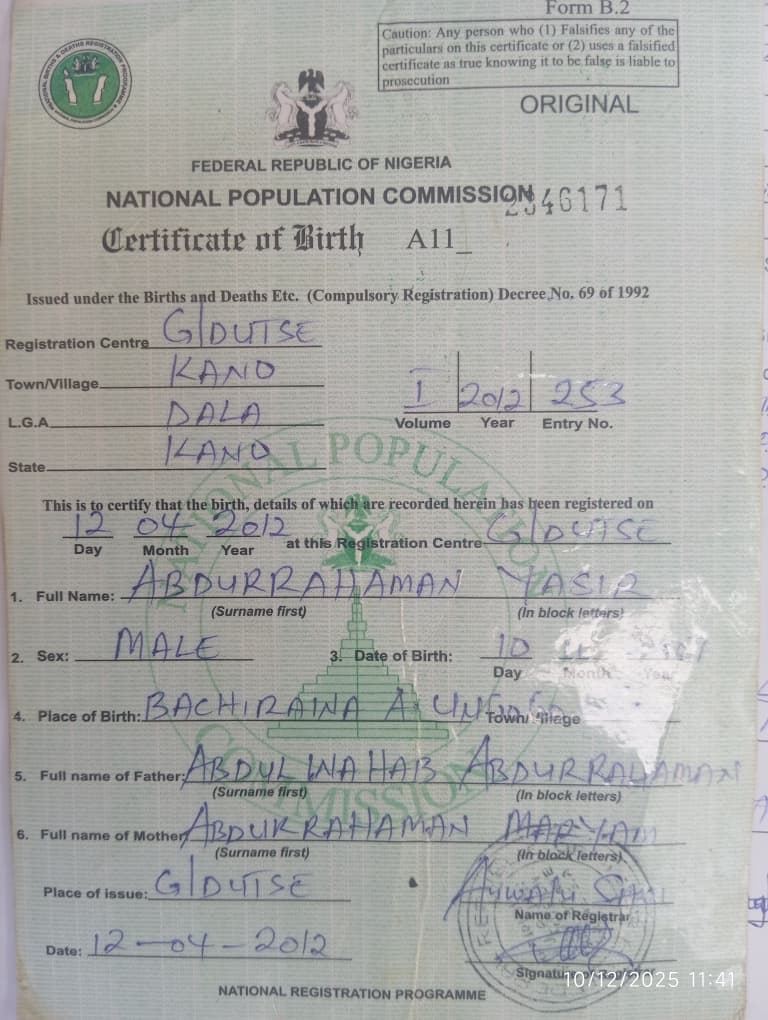 Form B.2
Caution: Any person who (1) Falsifies any of the
particulars on this certificate or (2) uses a falsified
certificate as true knowing it to be false is liable to
prosecution
ORIGINAL
FEDERAL REPUBLIC OF NIGERIA
NATIONAL POPULATION COMMISSION
46171
Certificate of Birth A11_
Issued under the Births and Deaths Etc. (Compulsory Registration) Decree No. 69 of 1992
Registration Centre G/DUTSE
Town/Village KANO
I 2012 253
L.G.A DALA
Volume Year Entry No.
State KANO
NATIONAL POPULATION COMMISSION
This is to certify that the birth, details of which are recorded herein has been registered on
12 04 2012 at this Registration Centre G/DUTSE
Day Month Year
1. Full Name: ABDURRAHAMAN YASIR
(Surname first) (In block letters)
2. Sex: MALE 3. Date of Birth: 10
Day Month Year
4. Place of Birth: BACHIRAWA A. Town/Village
5. Full name of Father: ABDULWAHAB ABDURRAHAMAN
(Surname first) (In block letters)
6. Full name of Mother ABDURRAHAMAN MARYAM
(Surname first) (In block letters)
Place of issue: G/DUTSE
Name of Registrar
Date: 12-04-2012
NATIONAL REGISTRATION PROGRAMME
10/12/2025 11:41